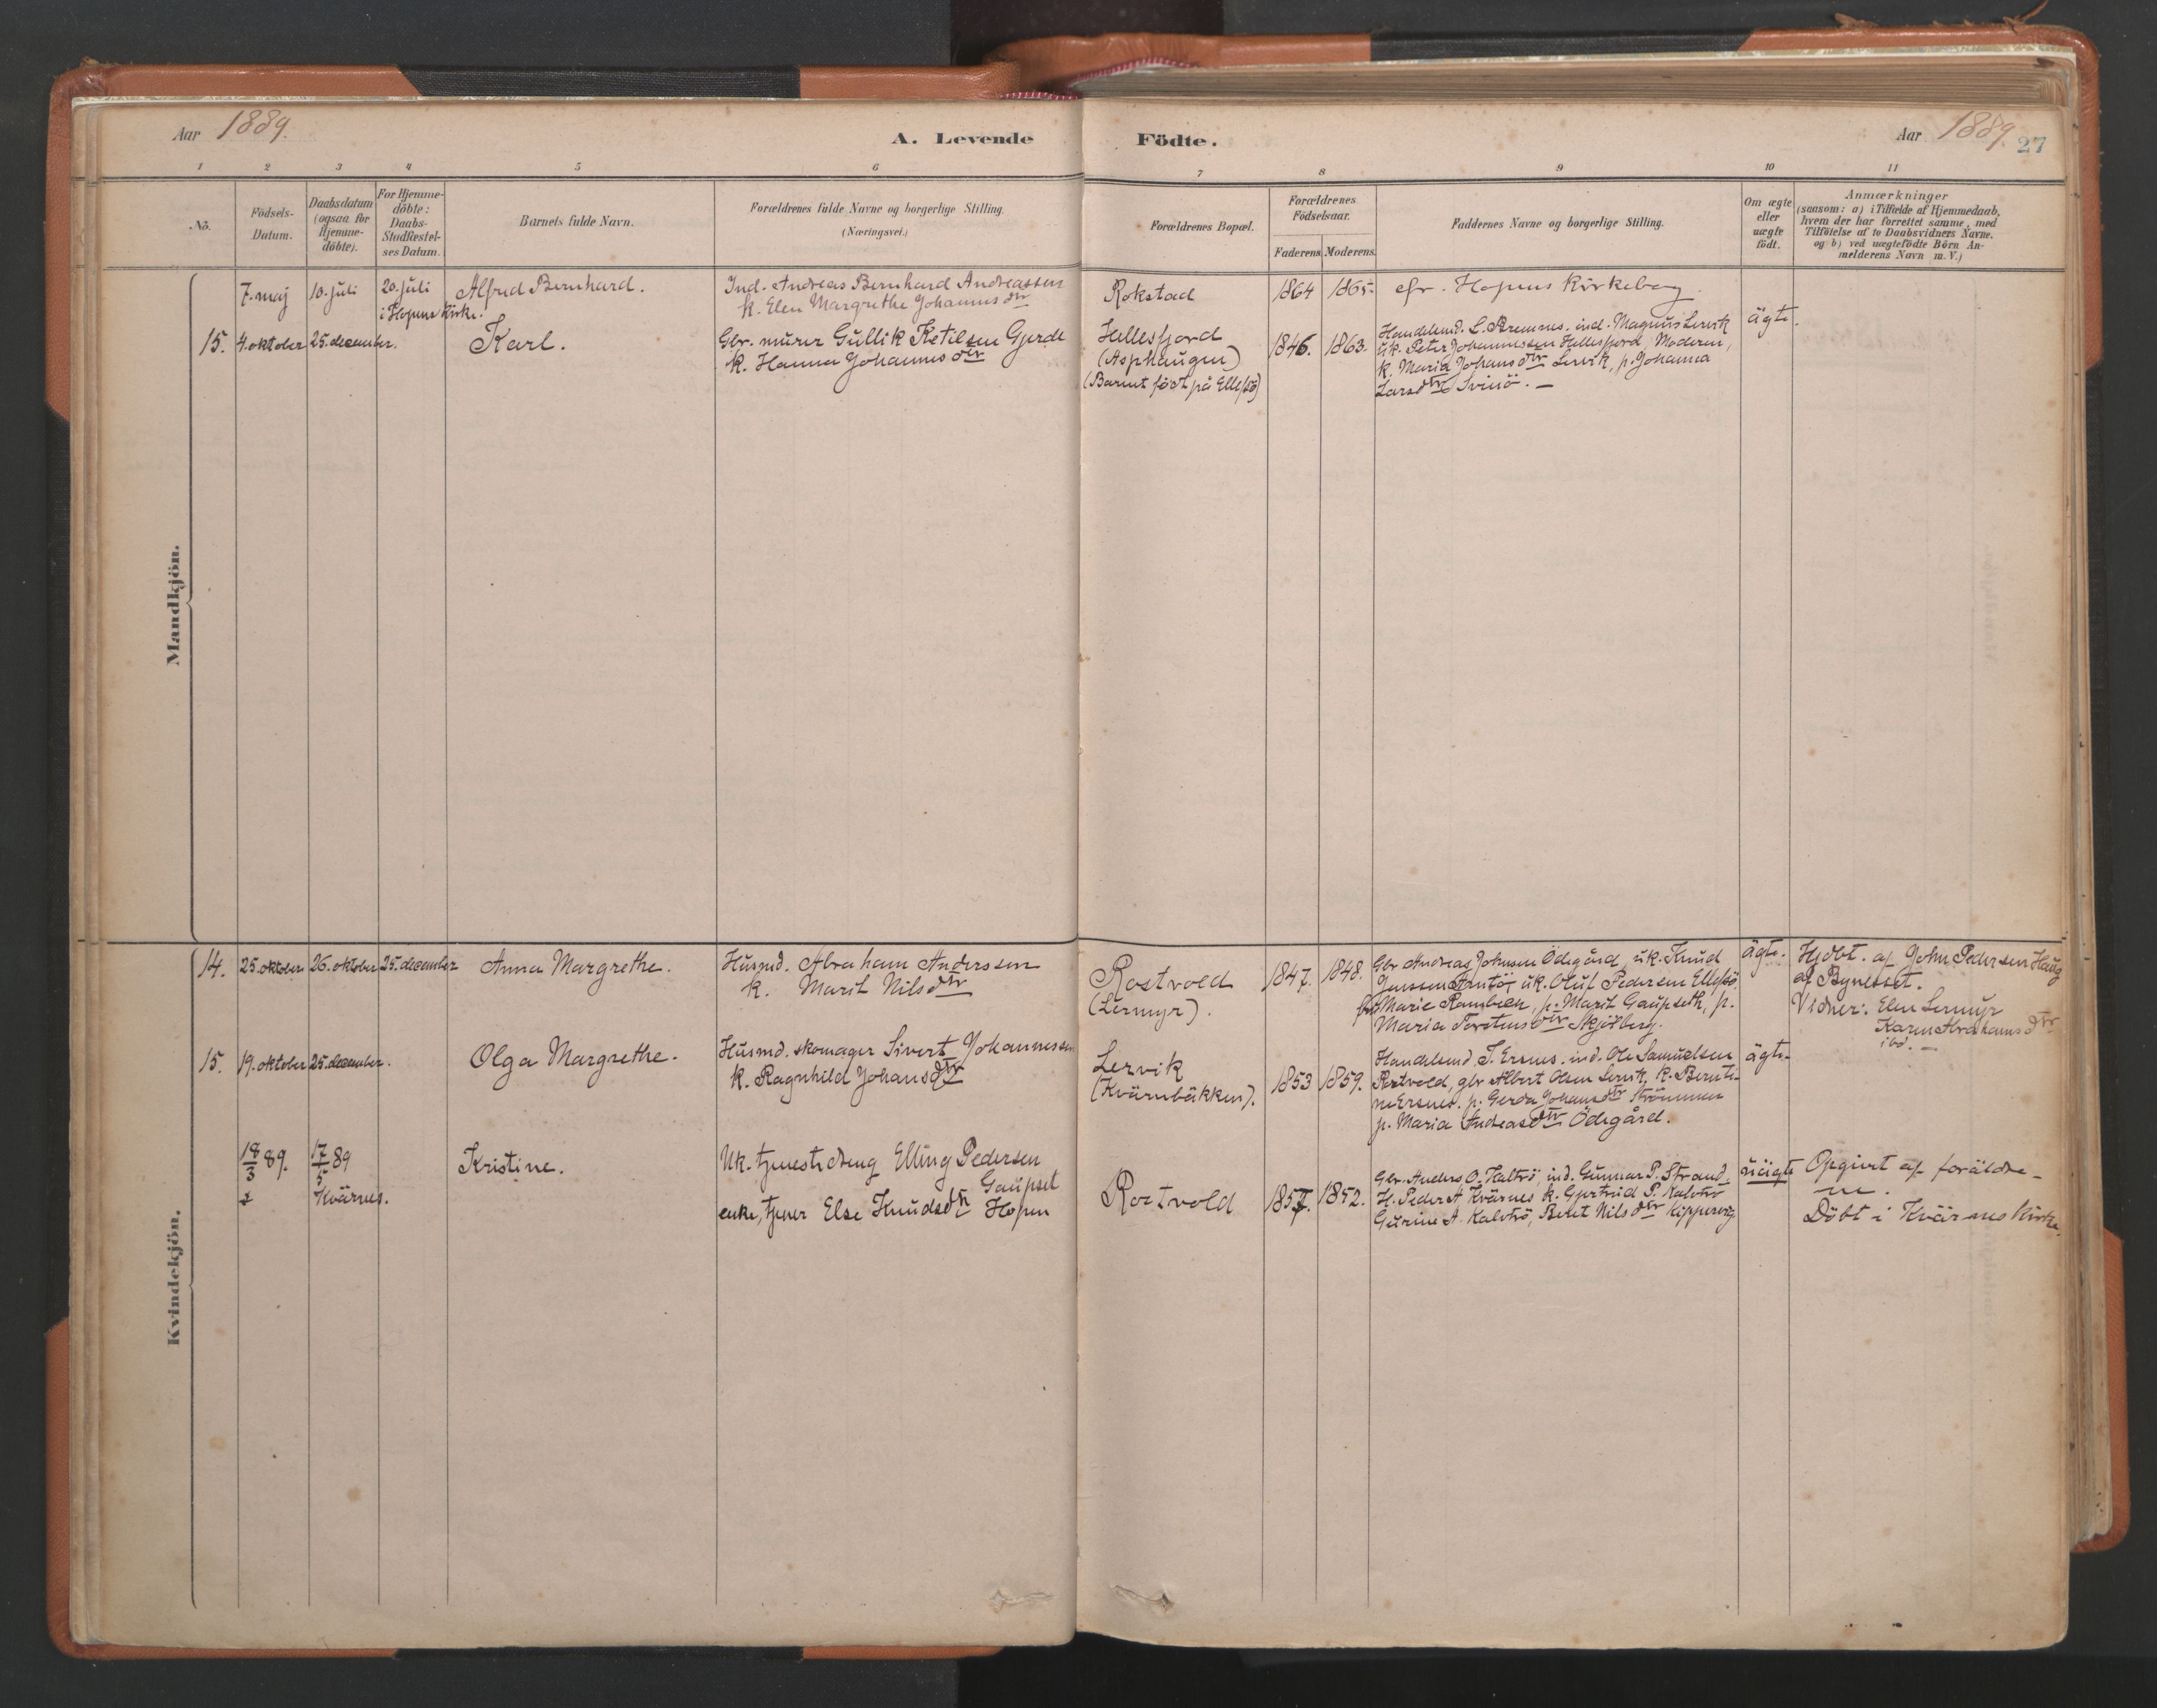 Aar 1889.
A. Levende Födte.
Aar 1889. 27
1 2 3 4 5 6 7 8 9 10 11
No.
Födsels-
Datum.
Daabsdatum
(ogsaa for
Hjemme-
döbte).
For Hjemme-
döbte:
Daabs-
Stadfæstel-
ses Datum.
Barnets fulde Navn.
Forældrenes fulde Navne og borgerlige Stilling.
(Næringsvei.)
Forældrenes Bopæl.
Forældrenes
Födselsaar.
Faderens Moderens.
Faddernes Navne og borgerlige Stilling.
Om ægte
eller
uægte
födt.
Anmærkninger
(saasom: a) i Tilfælde af Hjemmedaab,
hvem der har forrettet samme, med
Tilföielse af to Daabsvidners Navne.
og b) ved uægtefödte Börn An-
melderens Navn m. V.)
Mandkjön.
7. maj
10. juli
20. juli
i Hopens Kirke.
Alfred Bernhard.
Ind. Andreas Bernhard Andreassen
k. Elen Margrethe Johannesdtr
Rokstad
1864 1865.
cfr. Hopens Kirkebog.
15. 4. oktober 25. december.
Karl.
Gbr. murer Gullik Ketilsen Gjerde
k. Hanna Johannesdtr
Hellesfjord
(Asphaugen)
(Barnet født på Ellefsö)
1846. 1863.
Handelsmd. L. Bremnes, ind. Magnus Lervik
uk. Peter Johannessen Hellesfjord, Moderen,
k. Maria Johansdtr Lervik, p. Johanna
Larsdtr Svinö. —
ägte.
Kvindekjön.
14. 25. oktober 26. oktober 25. december
Anna Margrethe.
Husmd. Abraham Anderssen
k. Marit Nilsdtr
Rostvold
(Lermyr).
1847. 1848.
Gbr. Andreas Johnsen Ödegård, uk. Knud
Jenssen uk. Oluf Pedersen Ellefsö,
Marie Rambech, p. Marit Gaupseth, p.
Maria Torstensdtr Skjölberg.
ägte.
Hjdbt. af John Pedersen Haug
af Bynesset.
Vidner: Elen Lermyr
Karen Abrahamsdtr
ibd. —
15. 19. oktober 25. december.
Olga Margrethe.
Husmd. skomager Sivert Johannessen
k. Ragnhild Johansdtr
Lervik
(Kvärnbäkken).
1853 1859.
Handelsmd. T. Ersnes. ind. Ole Samuelsen
Rostvold, gbr Albert Olsen Lervik, k. Bernti-
ne Ersnes. p. Gerda Johansdtr Strömmen
p. Maria Andreasdtr Ödegård.
ägte.
18/3 89.
17/5 89
Kvärnes.
Kristine.
Uk. tjenestedreng Elling Pedersen
Gaupset
enke, tjener Else Knudsdtr Hopen
Rostvold
1857. 1852.
Gbr. Anders O. Kaltvö, ind. Gunnar P. Strand,
H. Peder A. Kvärnes k. Gjertrud P. Kalvtrö
Gurine A. Kalvtrö, Beret Nilsdtr Kippervig
uägte
Opgivet af foräldre-
ne.
Döbt i Kvärnes Kirke.